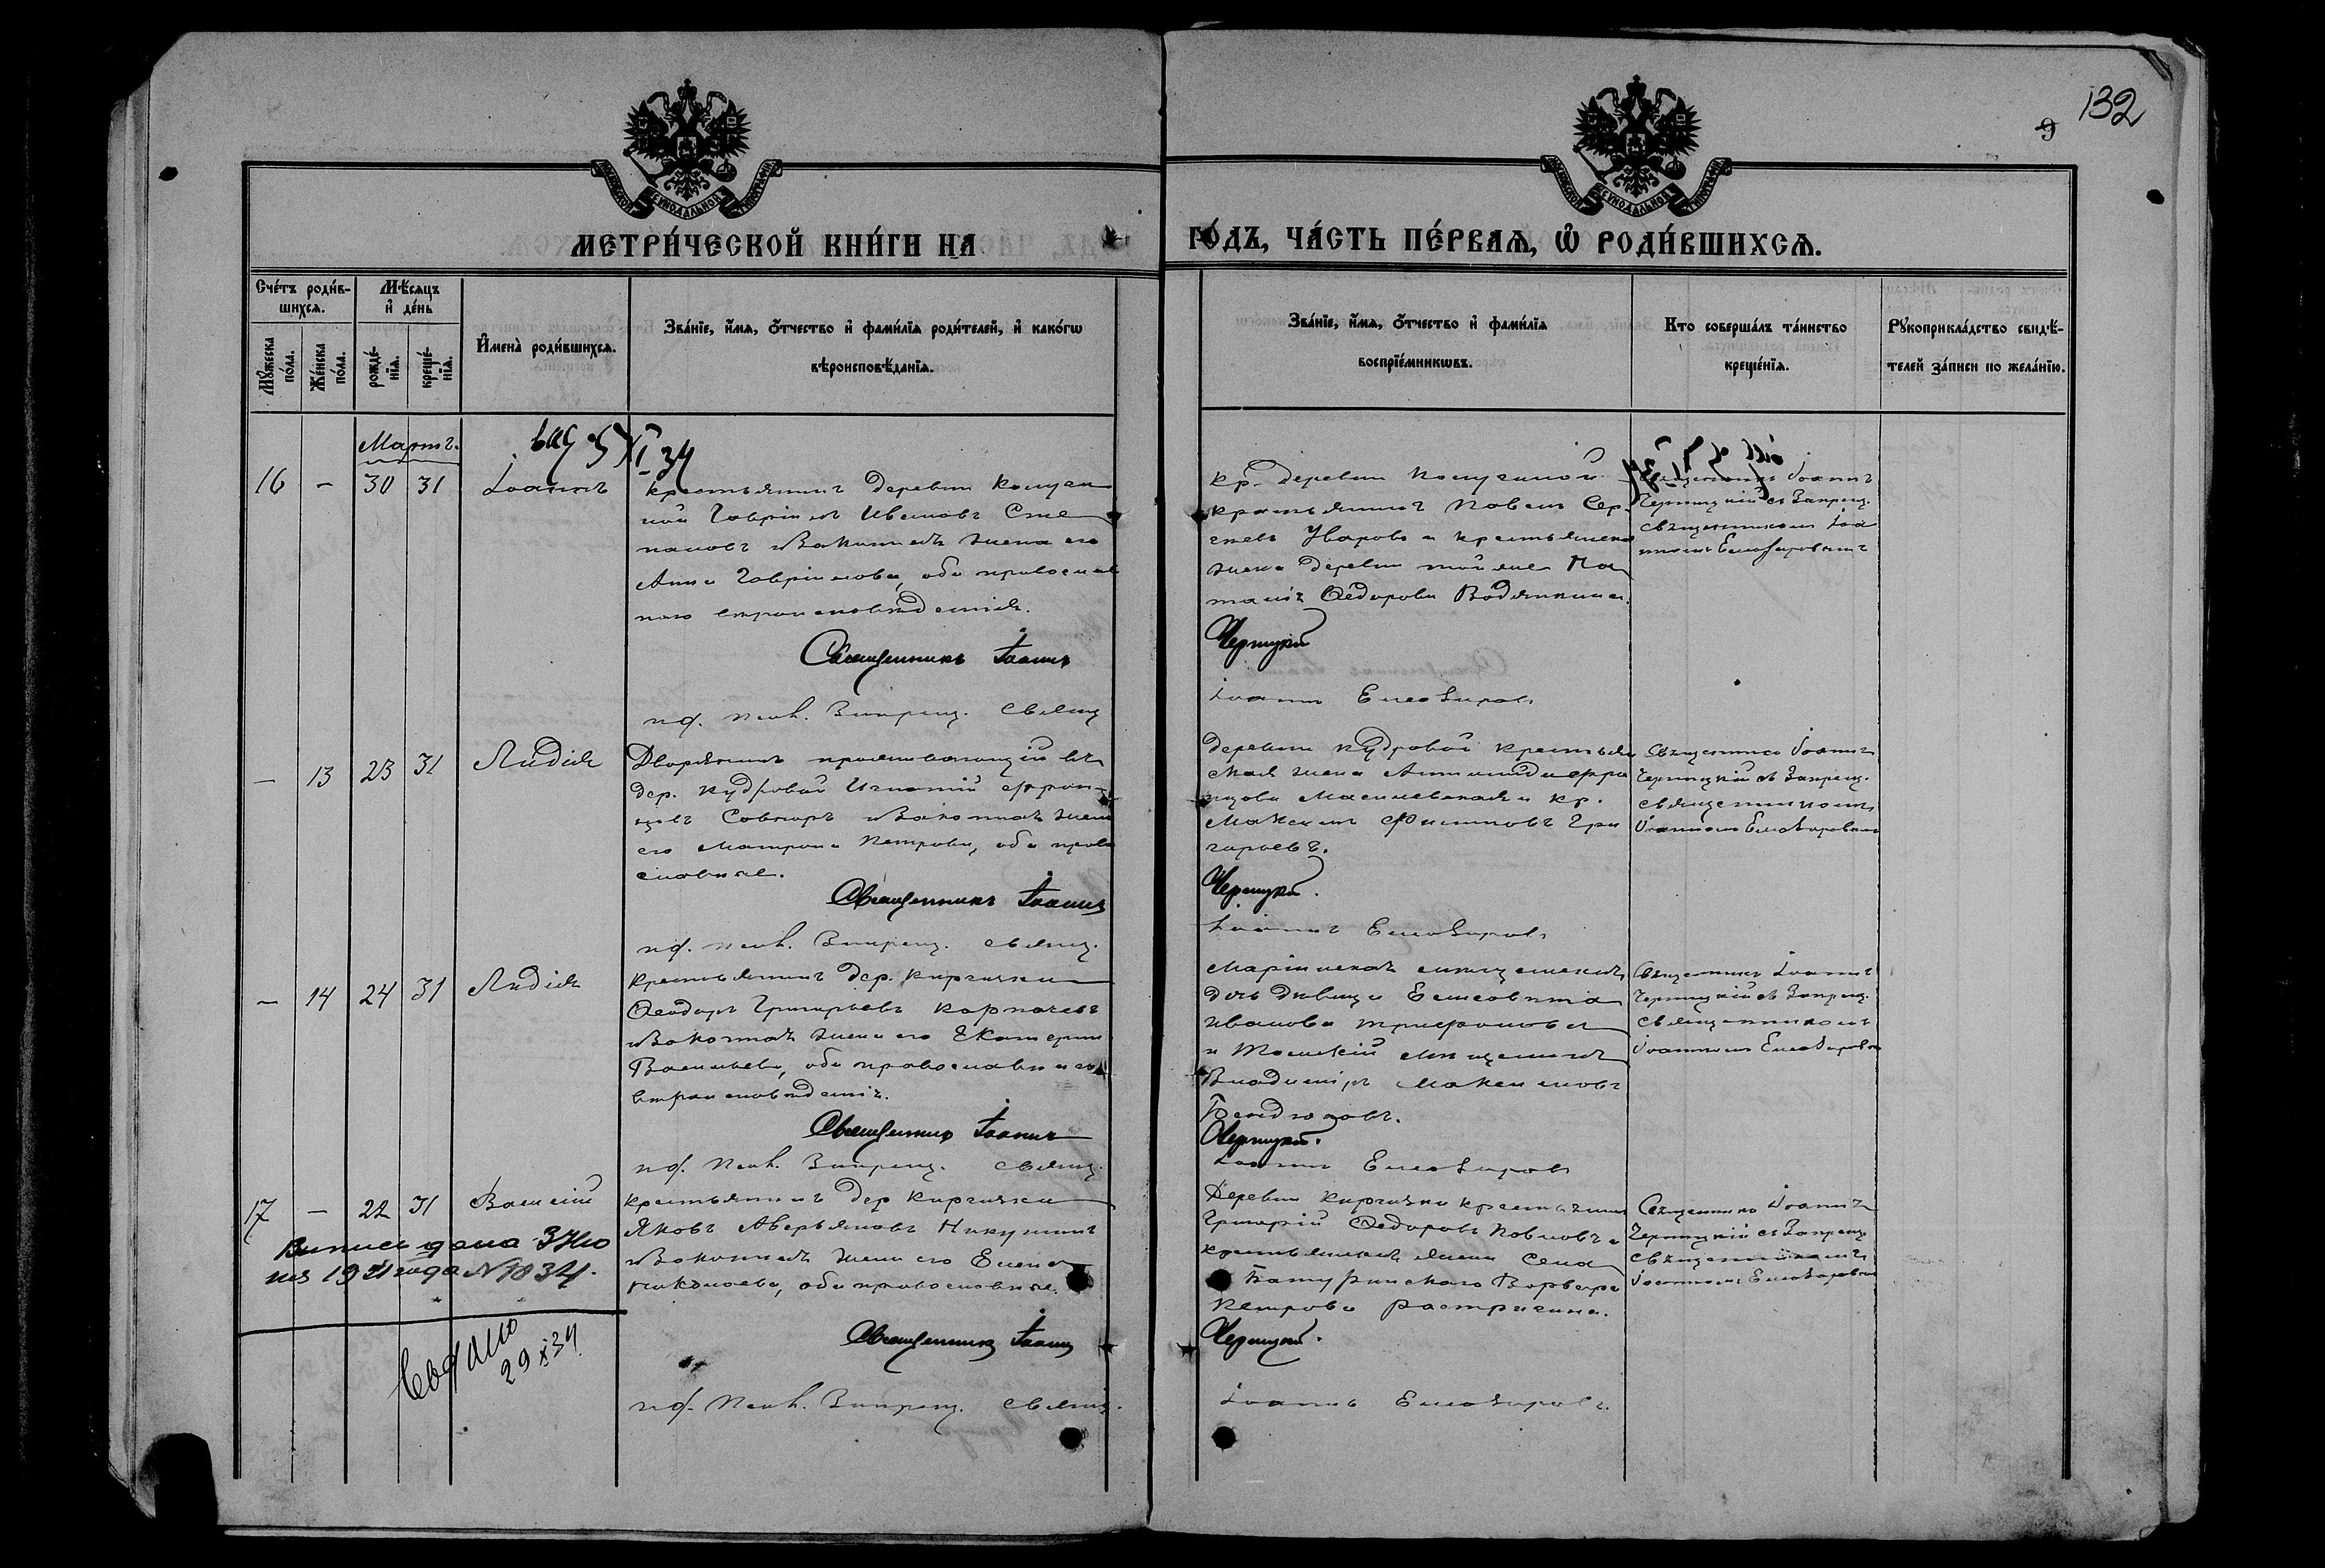 132
9
МЕТРИ́ЧЕСКОЙ КНИ́ГИ НА
ГО́ДЪ, ЧА́СТЬ ПЕ́РВАѦ, Ѡ҆ РОДИ́ВШИХСѦ.
Сче́тъ роди́в-
шихсѧ.
Мꙋ́жеска по́ла.
Же́нска по́ла.
Мѣ́сѧцъ
и҆ де́нь
рожде́-
нїѧ.
креще́-
нїѧ.
И҆мена̀ роди́вшихсѧ.
Зва́нїе, и҆́мѧ, ѻ҆́тчество и҆ фами́лїѧ роди́телей, и҆ како́гѡ
вѣроисповѣ́данїѧ.
Зва́нїе, и҆́мѧ, ѻ҆́тчество и҆ фами́лїѧ
воспрїе́мникѡвъ.
Кто соверша́лъ та́инство
креще́нїѧ.
Рꙋкоприкла́дство свидѣ́-
телей за́писи по жела́нїю.
Мартъ.
16 - 30 31 Іоаннъ
крестьянинъ деревни
Гавріилъ Ивановъ Сте
пановъ и законная жена его
Анна Гаврілова, оба православ
наго вѣроисповѣданія.
Священникъ Іоаннъ
пс. Запрещ. свящ
кр. деревни
крестьянинъ Павелъ Сер-
гѣевъ Уваровъ и крестьянска
жена деревни той же На
талія Ѳедорова Водянкина.
Черницкій
Іоаннъ Елеазаровъ
Священникъ Іоаннъ
Черницкій съ Запрещ.
священникомъ Іоа
нномъ Елеазаровымъ
- 13 23 31 Лидія
Дворянинъ проживающій въ
дер. Кудровой Игнатій Фран-
цовъ и законная жена
его Матрона Петрова, оба право
славные.
Священникъ Іоаннъ
пс. Запрещ. свящ.
деревни Кудровой крестьян
ская жена Антонида Фра
нцова и кр.
Максимъ Филиповъ Гри
горьевъ.
Черницкій.
Іоаннъ Елеазаровъ
Священникъ Іоаннъ
Черницкій съ Запрещ.
священникомъ
Іоанномъ Елеазаровымъ
- 14 24 31 Лидія
крестьянинъ дер. Киргизки
Ѳеодоръ Григорьевъ Карпачевъ
и законная жена его Екатерина
Васильева, оба православнаго
вѣроисповѣданія.
Священникъ Іоаннъ
пс. Запрещ. свящ.
Маріинская мѣщанская
дочь дѣвица Елисавета
Иванова Трифонова
и Томскій мѣщанинъ
Владиміръ Максимовъ
Черницкій.
Іоаннъ Елеазаровъ
Священникъ Іоаннъ
Черницкій съ Запрещ.
священникомъ
Іоанномъ Елеазаровымъ
17 - 22 31 Василій
крестьянинъ дер Киргизки
Яковъ Аверьяновъ Никулинъ
и законная жена его Елена
Николаева, оба православные.
Священникъ Іоаннъ
пс. Запрещ. свящ.
Деревни Киргизки крестьянинъ
Григорій Ѳедоровъ Павловъ и
крестьянская жена села
Батуринскаго Варвара
Петрова Растригина.
Черницкій.
Іоаннъ Елеазаровъ.
Священникъ Іоаннъ
Черницкій съ Запрещ.
священникомъ
Іоанномъ Елеазаровымъ
Выпись дана 3 Ию
ня 1931 года № 1034.
29 X 34